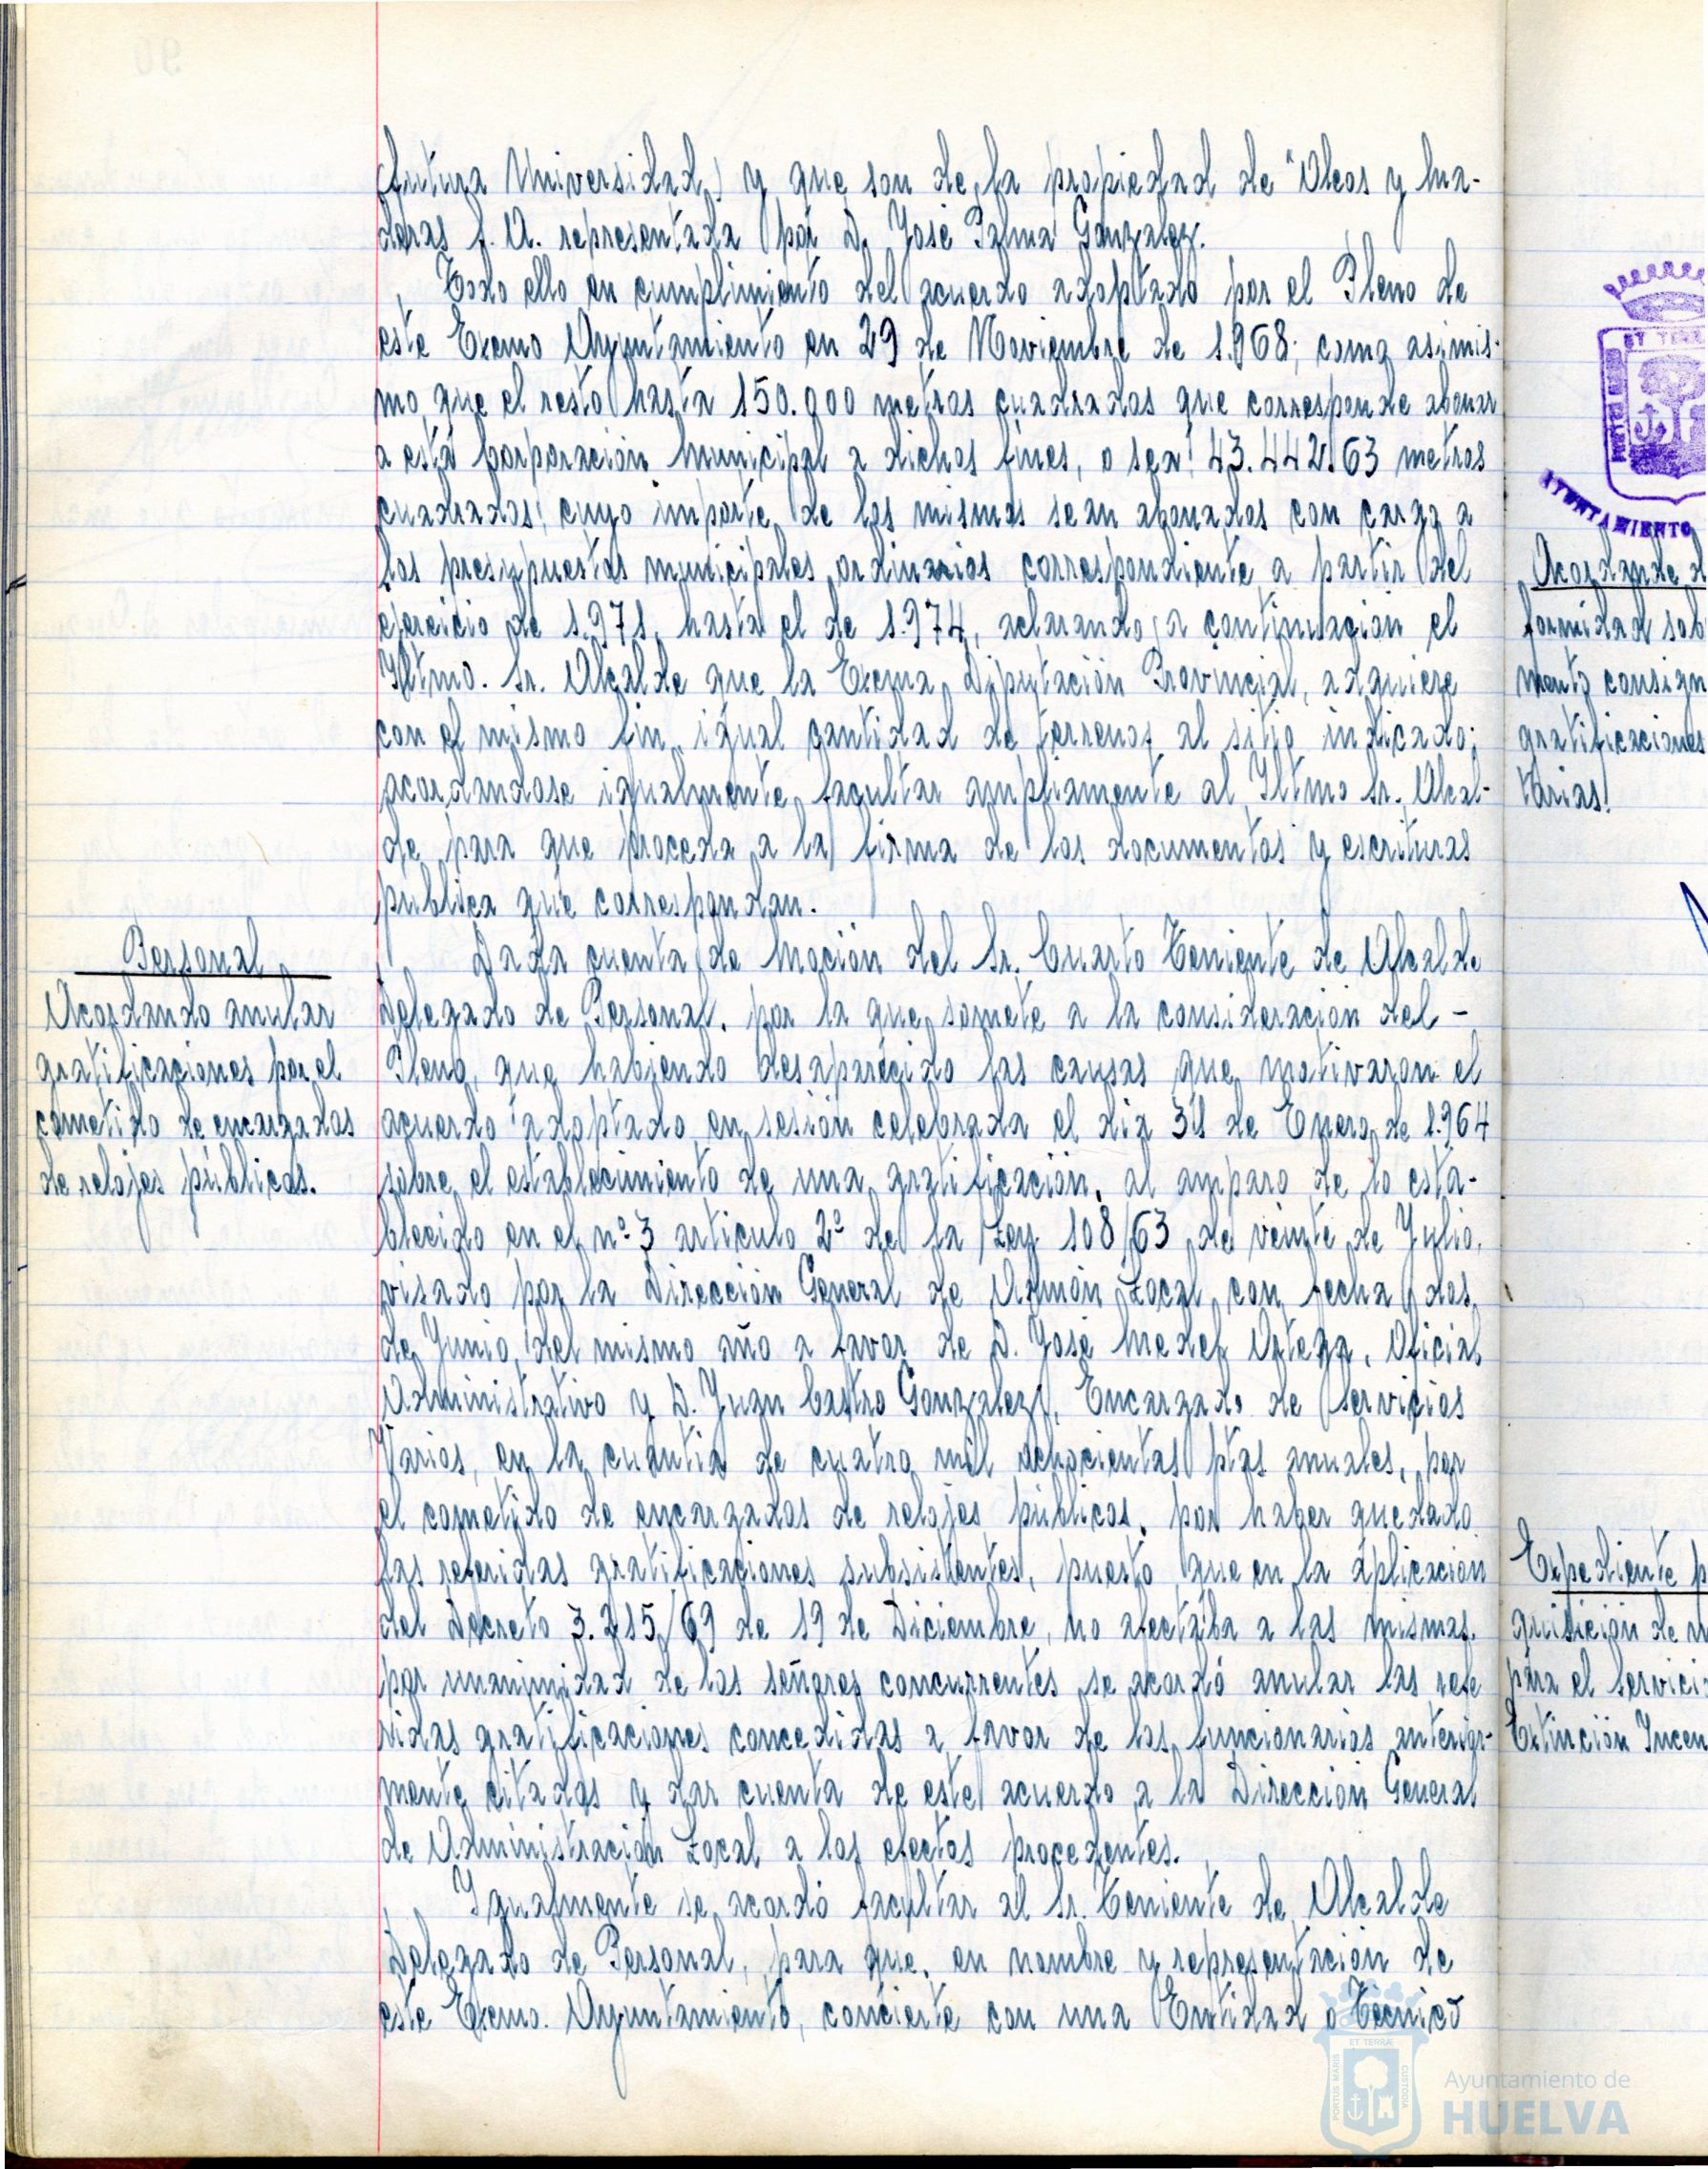 futura Universidad,) y que son de la propiedad de "Oleos y Ma-
deras S.A. representada por D. José Palma Gonzalez.
Todo ello en cumplimiento del acuerdo adoptado por el Pleno de
este Excmo Ayuntamiento en 29 de Noviembre de 1.968; como asimis-
mo que el resto hasta 150.000 metros cuadrados que corresponde abonar
a esta Corporación Municipal a dichos fines, o sea: 43.442.63 metros
cuadrados; cuyo importe de los mismos sean abonados con cargo a
los presupuestos municipales ordinarios correspondiente a partir del
ejercicio de 1.971, hasta el de 1.974, aclarando a continuación el
Iltmo. Sr. Alcalde que la Excma Diputación Provincial, adquiere
con el mismo fin, igual cantidad de terrenos al sitio indicado;
acordandose igualmente facultar ampliamente al Iltmo Sr. Alcal-
de para que proceda a la firma de los documentos y escrituras
publica que correspondan.
Personal
Acordando anular
gratificaciones por el
cometido de encargados
de relojes públicos.
Dada cuenta de Moción del Sr. Cuarto Teniente de Alcalde
Delegado de Personal, por la que somete a la consideración del -
Pleno, que habiendo desaparecido las causas que motivaron el
acuerdo adoptado en sesión celebrada el dia 31 de Enero de 1.964
sobre el establecimiento de una gratificación, al amparo de lo esta-
blecido en el nº 3 articulo 2º de la Ley 108/63 de veinte de Julio,
visado por la Dirección General de Admón Local con fecha dos
de Junio del mismo año a favor de D. José Medel Ortega, Oficial
Administrativo y D. Juan Castro Gonzalez, Encargado de Servicios
Varios, en la cuantia de cuatro mil ochocientas ptas anuales, por
el cometido de encargados de relojes públicos, por haber quedado
las referidas gratificaciones subsistentes, puesto que en la aplicación
del Decreto 3.215/69 de 19 de Diciembre, no afectaba a las mismas,
por unanimidad de los señores concurrentes se acordó anular las refe
ridas gratificaciones concedidas a favor de los funcionarios anterior-
mente citados y dar cuenta de este acuerdo a la Dirección General
de Administración Local a los efectos procedentes.
Igualmente se acordó facultar al Sr. Teniente de Alcalde
Delegado de Personal, para que, en nombre y representación de
este Excmo. Ayuntamiento, concierte con una Entidad o Tecnico
ET TERRA
AYUNTAMIENTO
Acordando
formidad sob
mento consign
gratificaciones
tarias.
Expediente p
quisición de
para el Servici
Extinción Incen
ET TERRA
PORTUS MARIS
CUSTODIA
Ayuntamiento de
HUELVA